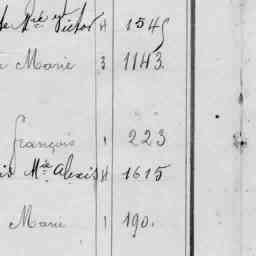 Victor 4 1545
Marie 3 1143
françois 1 223
Mie Alexis 4 1615
Marie 1 190.